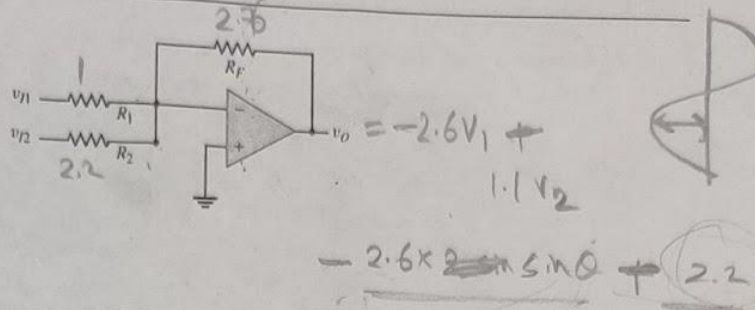 2.76
R_F
1
v_I1
R_1
v_I2
R_2
2.2
v_O = -2.6V_1 +
1.1V_2
- 2.6 × sin θ + 2.2